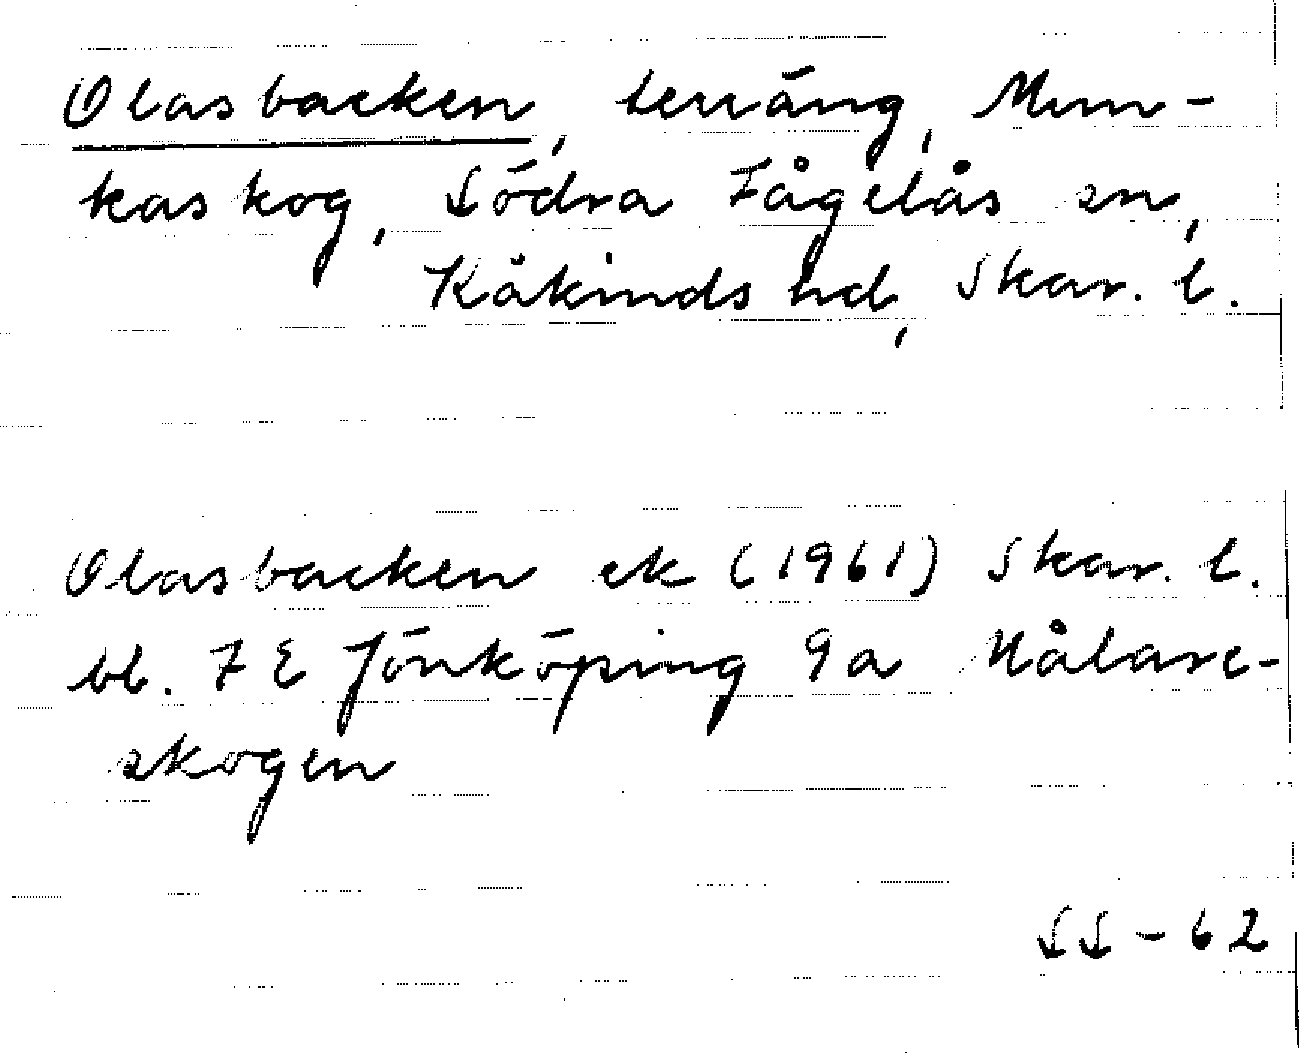 Olasbacken, terräng, Mun-
kaskog, Södra Fågelås sn,
Kåkinds hd, Skar. l.
Olasbacken ek (1961) Skar. l.
bl. 7 E Jönköping 9a Hålare-
skogen
SS-62